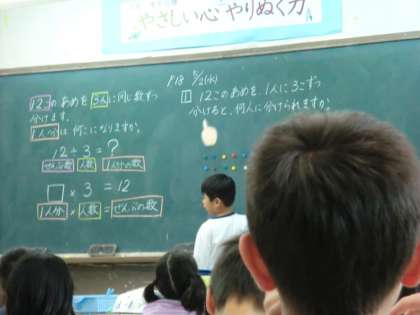 やさしい心 やりぬく力
12このあめを3人に同じ数ずつ
分けます。
1人分は何こになりますか。
12÷3=?
ぜんぶの数 人数 1人分の数
□×3=12
1人分×人数=ぜんぶの数
P.18 5/2(水)
1 12このあめを、1人に3こずつ
分けると、何人に分けられますか。